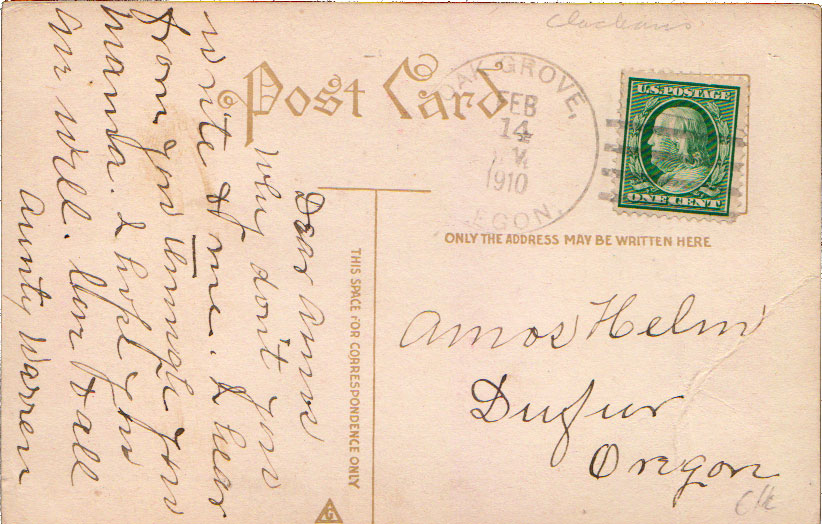 Clackamas
Post Card
OAK GROVE,
FEB
14
1910
EGON.
U.S. POSTAGE
ONE CENT
ONLY THE ADDRESS MAY BE WRITTEN HERE
THIS SPACE FOR CORRESPONDENCE ONLY
Dear Amos
why don't you
write to me. I hear
from you through your
mama. I hope you
are well. Love to all
Aunty Warren
Amos Helm
Dufur
Oregon